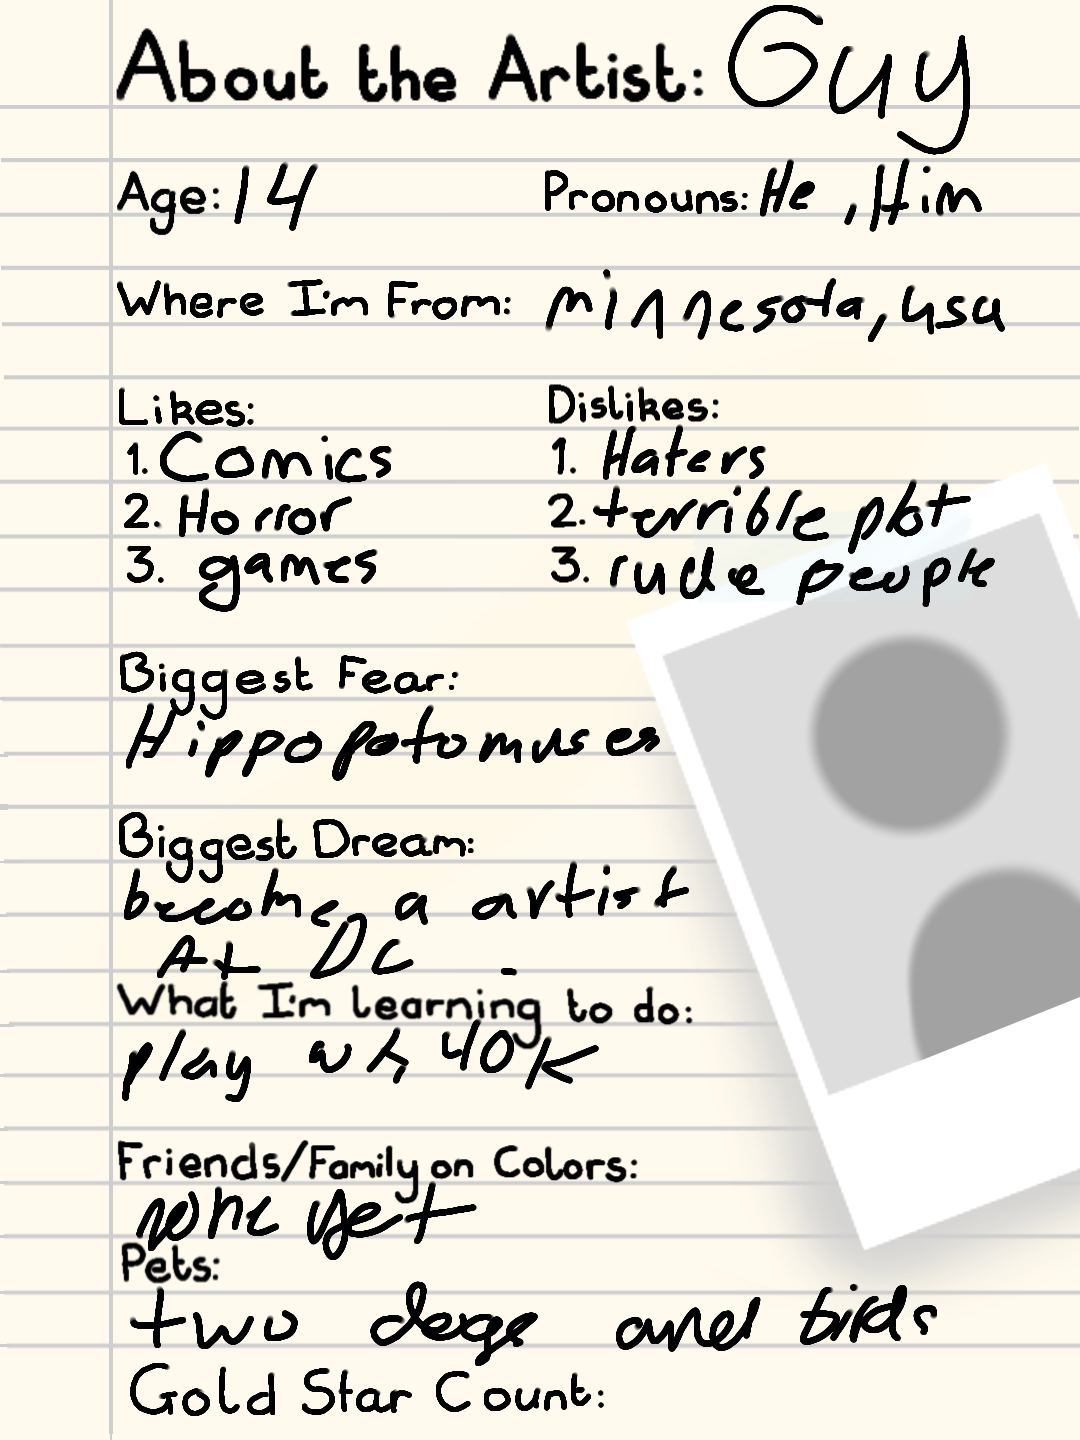 About the Artist: Guy
Age: 14 Pronouns: He, Him
Where I'm From: minnesota, usa
Likes: Dislikes:
1. Comics 1. Haters
2. Horror 2. terrible plot
3. games 3. rude people
Biggest Fear:
Hippopotomuses
Biggest Dream:
become a artist
At DC
What I'm learning to do:
play wh 40K
Friends/Family on Colors:
none yet
Pets:
two dogs and birds
Gold Star Count: